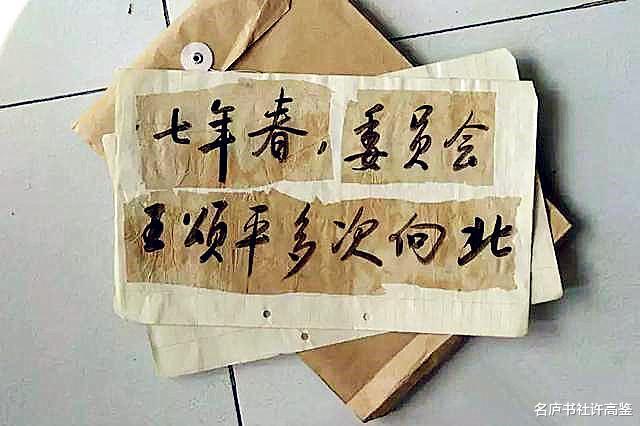 七年春，委员会
王颂平多次向北
名庐书社许高鉴